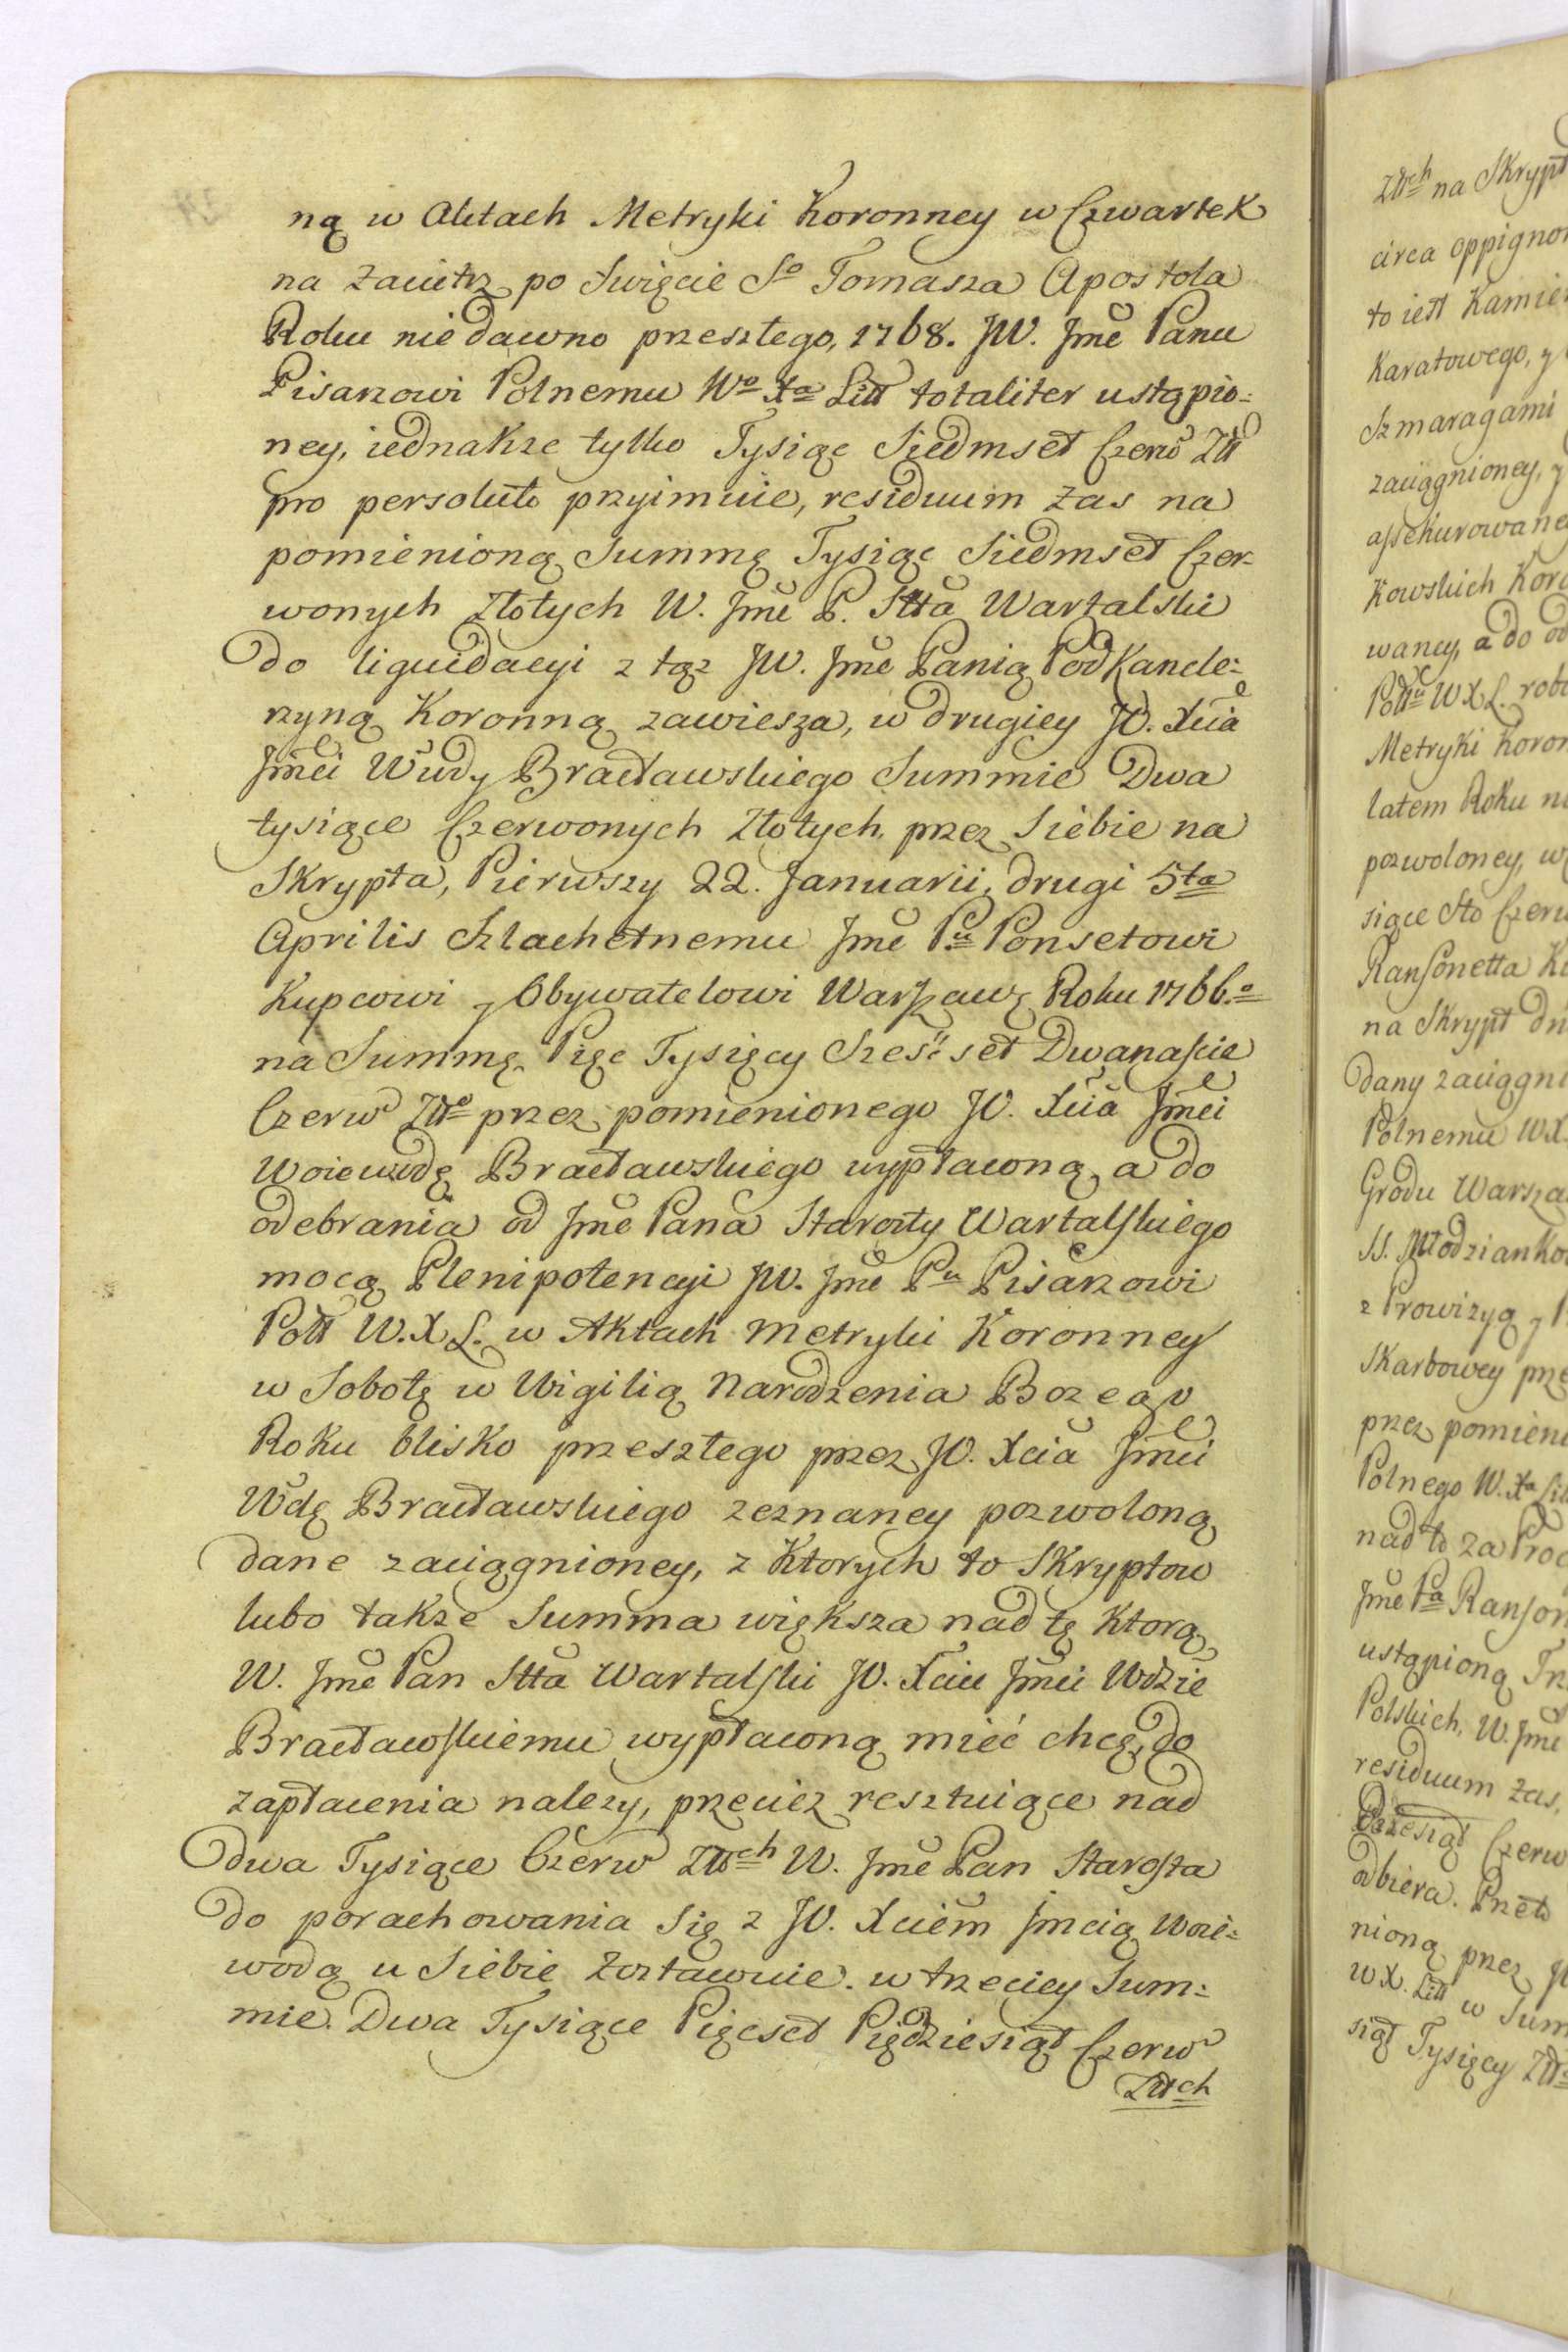 ną w Aktach Metryki Koronney w Czwartek
na zaiutrz po Swięcie So Tomasza Apostola
Roku niedawno przeszłego, 1768. JW. Jmć Panu
Pisarzowi Polnemu Wo Xa Litt totaliter ustąpio=
ney, iednakze tylko Tysiąc Siedmset Czerw Złł
pro persoluto przyimuie, residuum zas na
pomienioną Summę Tysiąc Siedmset Czer-
wonych Złotych W. Jmć P. Stta Wartalski
do liquidacyi z tąz JW. Jmć Panią PodKancle=
rzyną Koronną zawiesza, w drugiey JO. Xcia
Jmci Wwdy Bracławskiego Summie Dwa
tysiące Czerwonych Złotych przez Siebie na
Skrypta, Pierwszy 22. Januarii, drugi 5ta
Aprilis Szlachetnemu Jmć Pu Ponsetowi
Kupcowi y Obywatelowi Warszaws Roku 1766.o
na Summę Pięc Tysięcy Szesc set Dwanaście
Czerw Złło przez pomienionego JO. Xcia Jmci
Woiewodę Bracławskiego wypłaconą, a do
odebrania od Jmć Pana Starosty Wartalskiego
mocą Plenipotencyi JW. Jmć Pu Pisarzowi
Poll W. X L. w Aktach Metryki Koronney
w Sobotę w Wigilią Narodzenia Bozego
Roku blisko przeszłego przez JO. Xcia Jmci
Wdę Bracławskiego zeznaney pozwoloną
dane zaciągnioney, z Ktorych to Skryptow
lubo takze Summa większa nad tę Ktorą
W. Jmć Pan Stta Wartalski JO. Xciu Jmci Wdzie
Bracławskiemu wypłaconą mieć chcę, do
zapłacenia nalezy, przecież resztuiące nad
dwa Tysiące Czerw Złłch W. Jmć Pan Starosta
do porachowania Się z JO. Xciem Jmcią Woie=
wodą u Siebie zostawuie. w trzeciey Sum=
mie Dwa Tysiące Pięcset Pięćdziesiąt Czerw
Złłch
Złłch na Skrypt
circa oppigno
to iest Kamie
Karatowego, y
Szmaragami
zaciągnioney, y
assekurowane
Kowskich Koro
waney, a do od
Polln W X L. robo
Metryki Koron
latem Roku ni
pozwoloney, w
siące Sto Czerw
Ransonetta Ku
na Skrypt dn
dany zaciągni
Polnemu W X.
Grodu Warsza
SS. Młodzianko
z Prowizyą y P
Skarbowey prze
przez pomieni
Polnego W. Xa Lit
nad to za Proc
Jmć Pa Ranson
ustąpioną Trz
Polskich, W. Jmć
residuum zas,
dziesiąt Czerw
odbiera. Przeto
nioną przez J
W X. Litt w Sum
siąt Tysięcy Złł